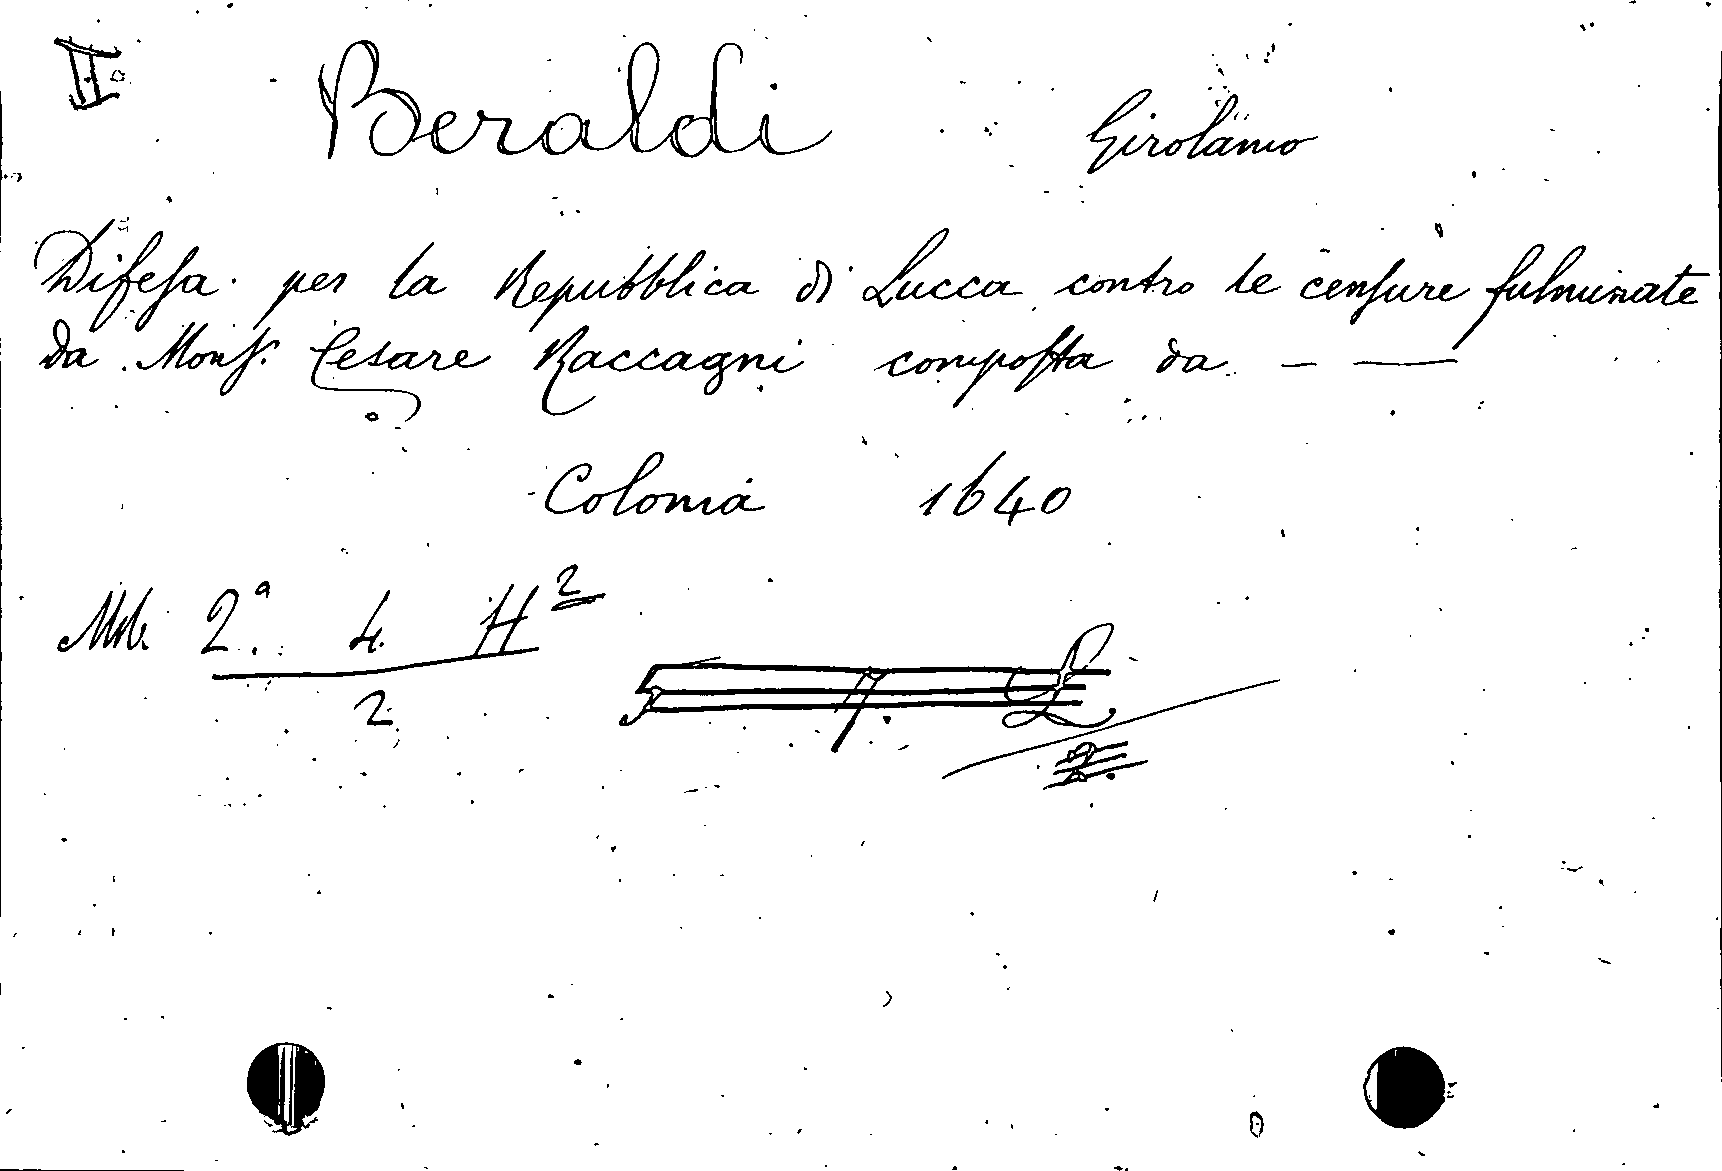 II
Beraldi Girolamo
Difeſa per la Repubblica di Lucca contro le cenſure fulminate
da Monſ. Cesare Raccagni compoſta da — —
Colonia 1640
2ª. 4. H²
2
5 7. L
2.